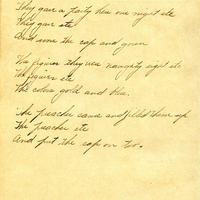 They gave a party here one night etc
They gave etc
And wore the cap and gown

The figures they were naughty eight etc
The figures etc
The colors gold and blue.

The preacher came and filled them up
The preacher etc
And put the cap on too.